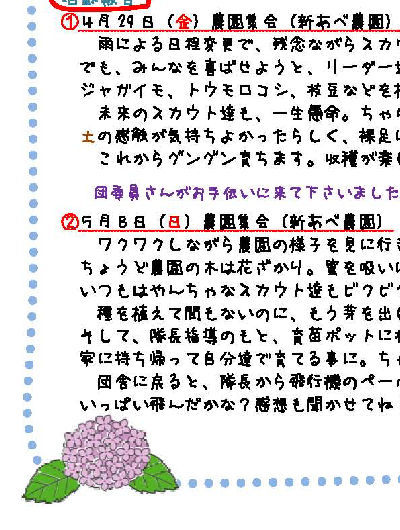 活動報告
①4月29日（金）農園集会（新あべ農園）
雨による日程変更で、残念ながらスカウ
でも、みんなを喜ばせようと、リーダー達
ジャガイモ、トウモロコシ、枝豆などを植
未来のスカウト達も、一生懸命。ちゃ
土の感触が気持ちよかったらしく、裸足に
これからグングン育ちます。収穫が楽
団委員さんがお手伝いに来て下さいました
②5月8日（日）農園集会（新あべ農園）
ワクワクしながら農園の様子を見に行き
ちょうど農園の木は花ざかり。蜜を吸い
いつもはやんちゃなスカウト達もビクビク
種を植えて間もないのに、もう芽を出
そして、隊長指導のもと、育苗ポットに
家に持ち帰って自分達で育てる事に。ち
団舎に戻ると、隊長から飛行機のペー
いっぱい飛んだかな？感想も聞かせてね